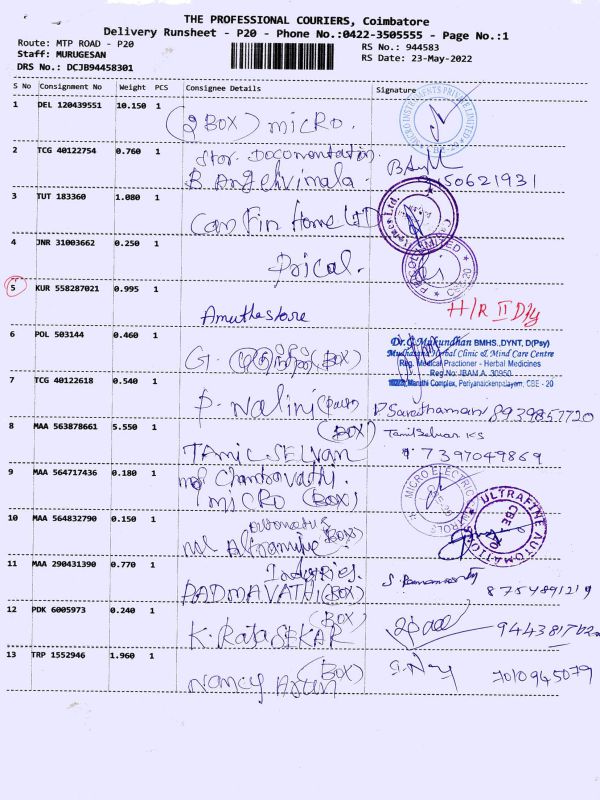 THE PROFESSIONAL COURIERS, Coimbatore
Delivery Runsheet - P20 - Phone No.:0422-3505555 - Page No.:1
Route: MTP ROAD - P20
RS No.: 944583
Staff: MURUGESAN
RS Date: 23-May-2022
DRS No.: DCJB94458301
S No Consignment No Weight PCS Consignee Details Signature
1 DEL 120439551 10.150 1
(2 BOX) micro.
2 TCG 40122754 0.760 1
B. Angelvimala.
3 TUT 183360 1.080 1
Can Fin Home LTD
4 JNR 31003662 0.250 1
Prical.
5 KUR 558287021 0.995 1
Amuthastore
H/R II Dly
6 POL 503144 0.460 1
G. (BOX)
Dr.G.Mukundhan BMHS.,DYNT, D(Psy)
Herbal Clinic & Mind Care Centre
Reg. Medical Practioner - Herbal Medicines
Reg.No: JBAM.A. 30950
Complex, Periyanaickenpalayam, CBE - 20
7 TCG 40122618 0.540 1
P. Nalini 8939857720
8 MAA 563878661 5.550 1
(BOX)
TAMIL SELVAN
7397049869
9 MAA 564717436 0.180 1
MICRO (BOX)
MICRO ELECTRIC
10 MAA 564832790 0.150 1
(BOX)
ULTRAFINE AUTOMATION
CBE 20
11 MAA 290431390 0.770 1
Industries.
PADMAVATHI (BOX)
8754891219
12 PDK 6005973 0.240 1
(BOX)
K. RAJASEKAR
13 TRP 1552946 1.960 1
(BOX)
Nancy
7010945079